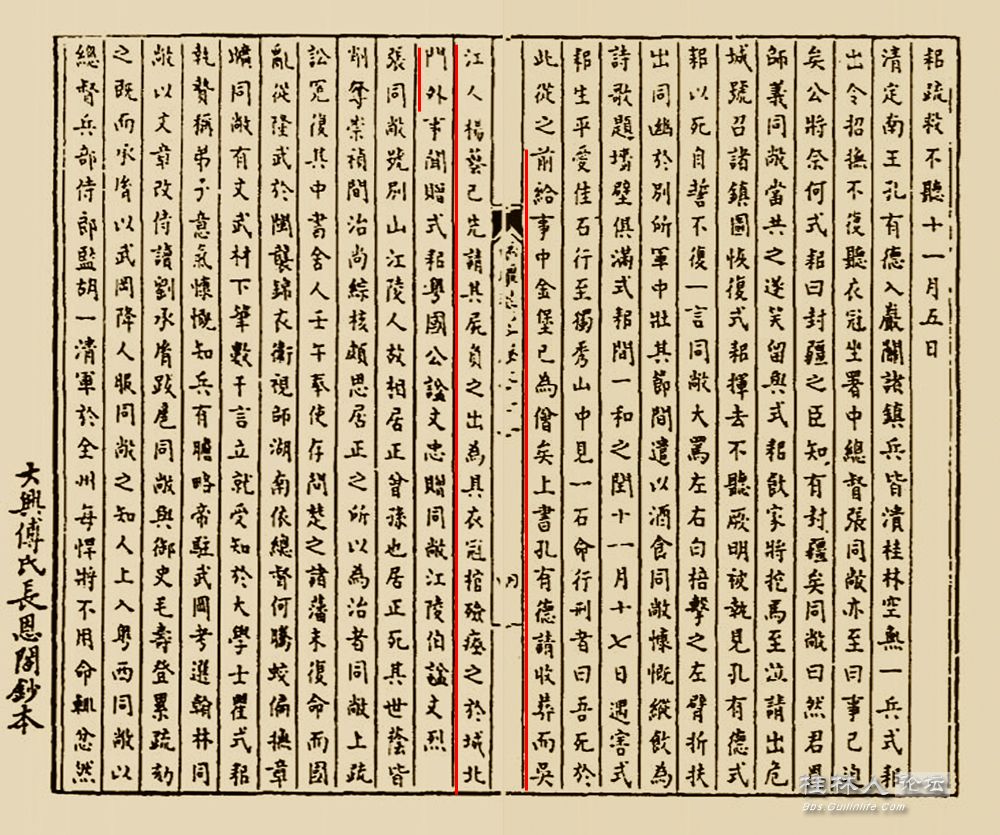 耜疏救不聽十一月五日
清定南王孔有德入嚴關諸鎮兵皆潰桂林空無一兵式耜
出令招撫不復聽衣冠坐署中總督張同敞亦至曰事已迫
矣公將奈何式耜曰封疆之臣知有封疆矣同敞曰然君恩
師義同敞當共之遂笑留與式耜飲家將挖馬至泣請出危
城號召諸鎮圖恢復式耜揮去不聽厥明被執見孔有德式
耜以死自誓不復一言同敞大罵左右白梧擊之左臂折扶
出同幽於別所軍中壯其節間遣以酒食同敞慷慨縱飲為
詩歌題墻壁俱滿式耜間一和之閏十一月十七日遇害式
耜生平愛佳石行至獨秀山中見一石命行刑者曰吾死於
此從之前給事中金堡已為僧矣上書孔有德請收葬而吳
江人楊藝已先請其屍負之出為具衣冠棺殮瘞之於城北
門外事聞贈式耜粵國公諡文忠贈同敞江陵伯諡文烈
張同敞號別山江陵人故相居正曾孫也居正死其世蔭皆
削奪崇禎間治尚綜核頗思居正之所以為治者同敞上疏
訟冤復其中書舍人壬午奉使存問楚之諸藩未復命而國
亂從隆武於閩襲錦衣衛視師湖南依總督何騰蛟偏撫章
曠同敞有文武材下筆數千言立就受知於大學士瞿式耜
執贄稱弟子意氣慷慨知兵有膽略帝駐武岡考選翰林同
敞以文章改侍讀劉承胤跋扈同敞與御史毛壽登累疏劾
之既而承胤以武岡降人服同敞之知人上入粵西同敞以
總督兵部侍郎監胡一清軍於全州每悍將不用命輒忿然
大興傅氏長恩閣鈔本
桂林人论坛
Bbs.Guilinlife.Com